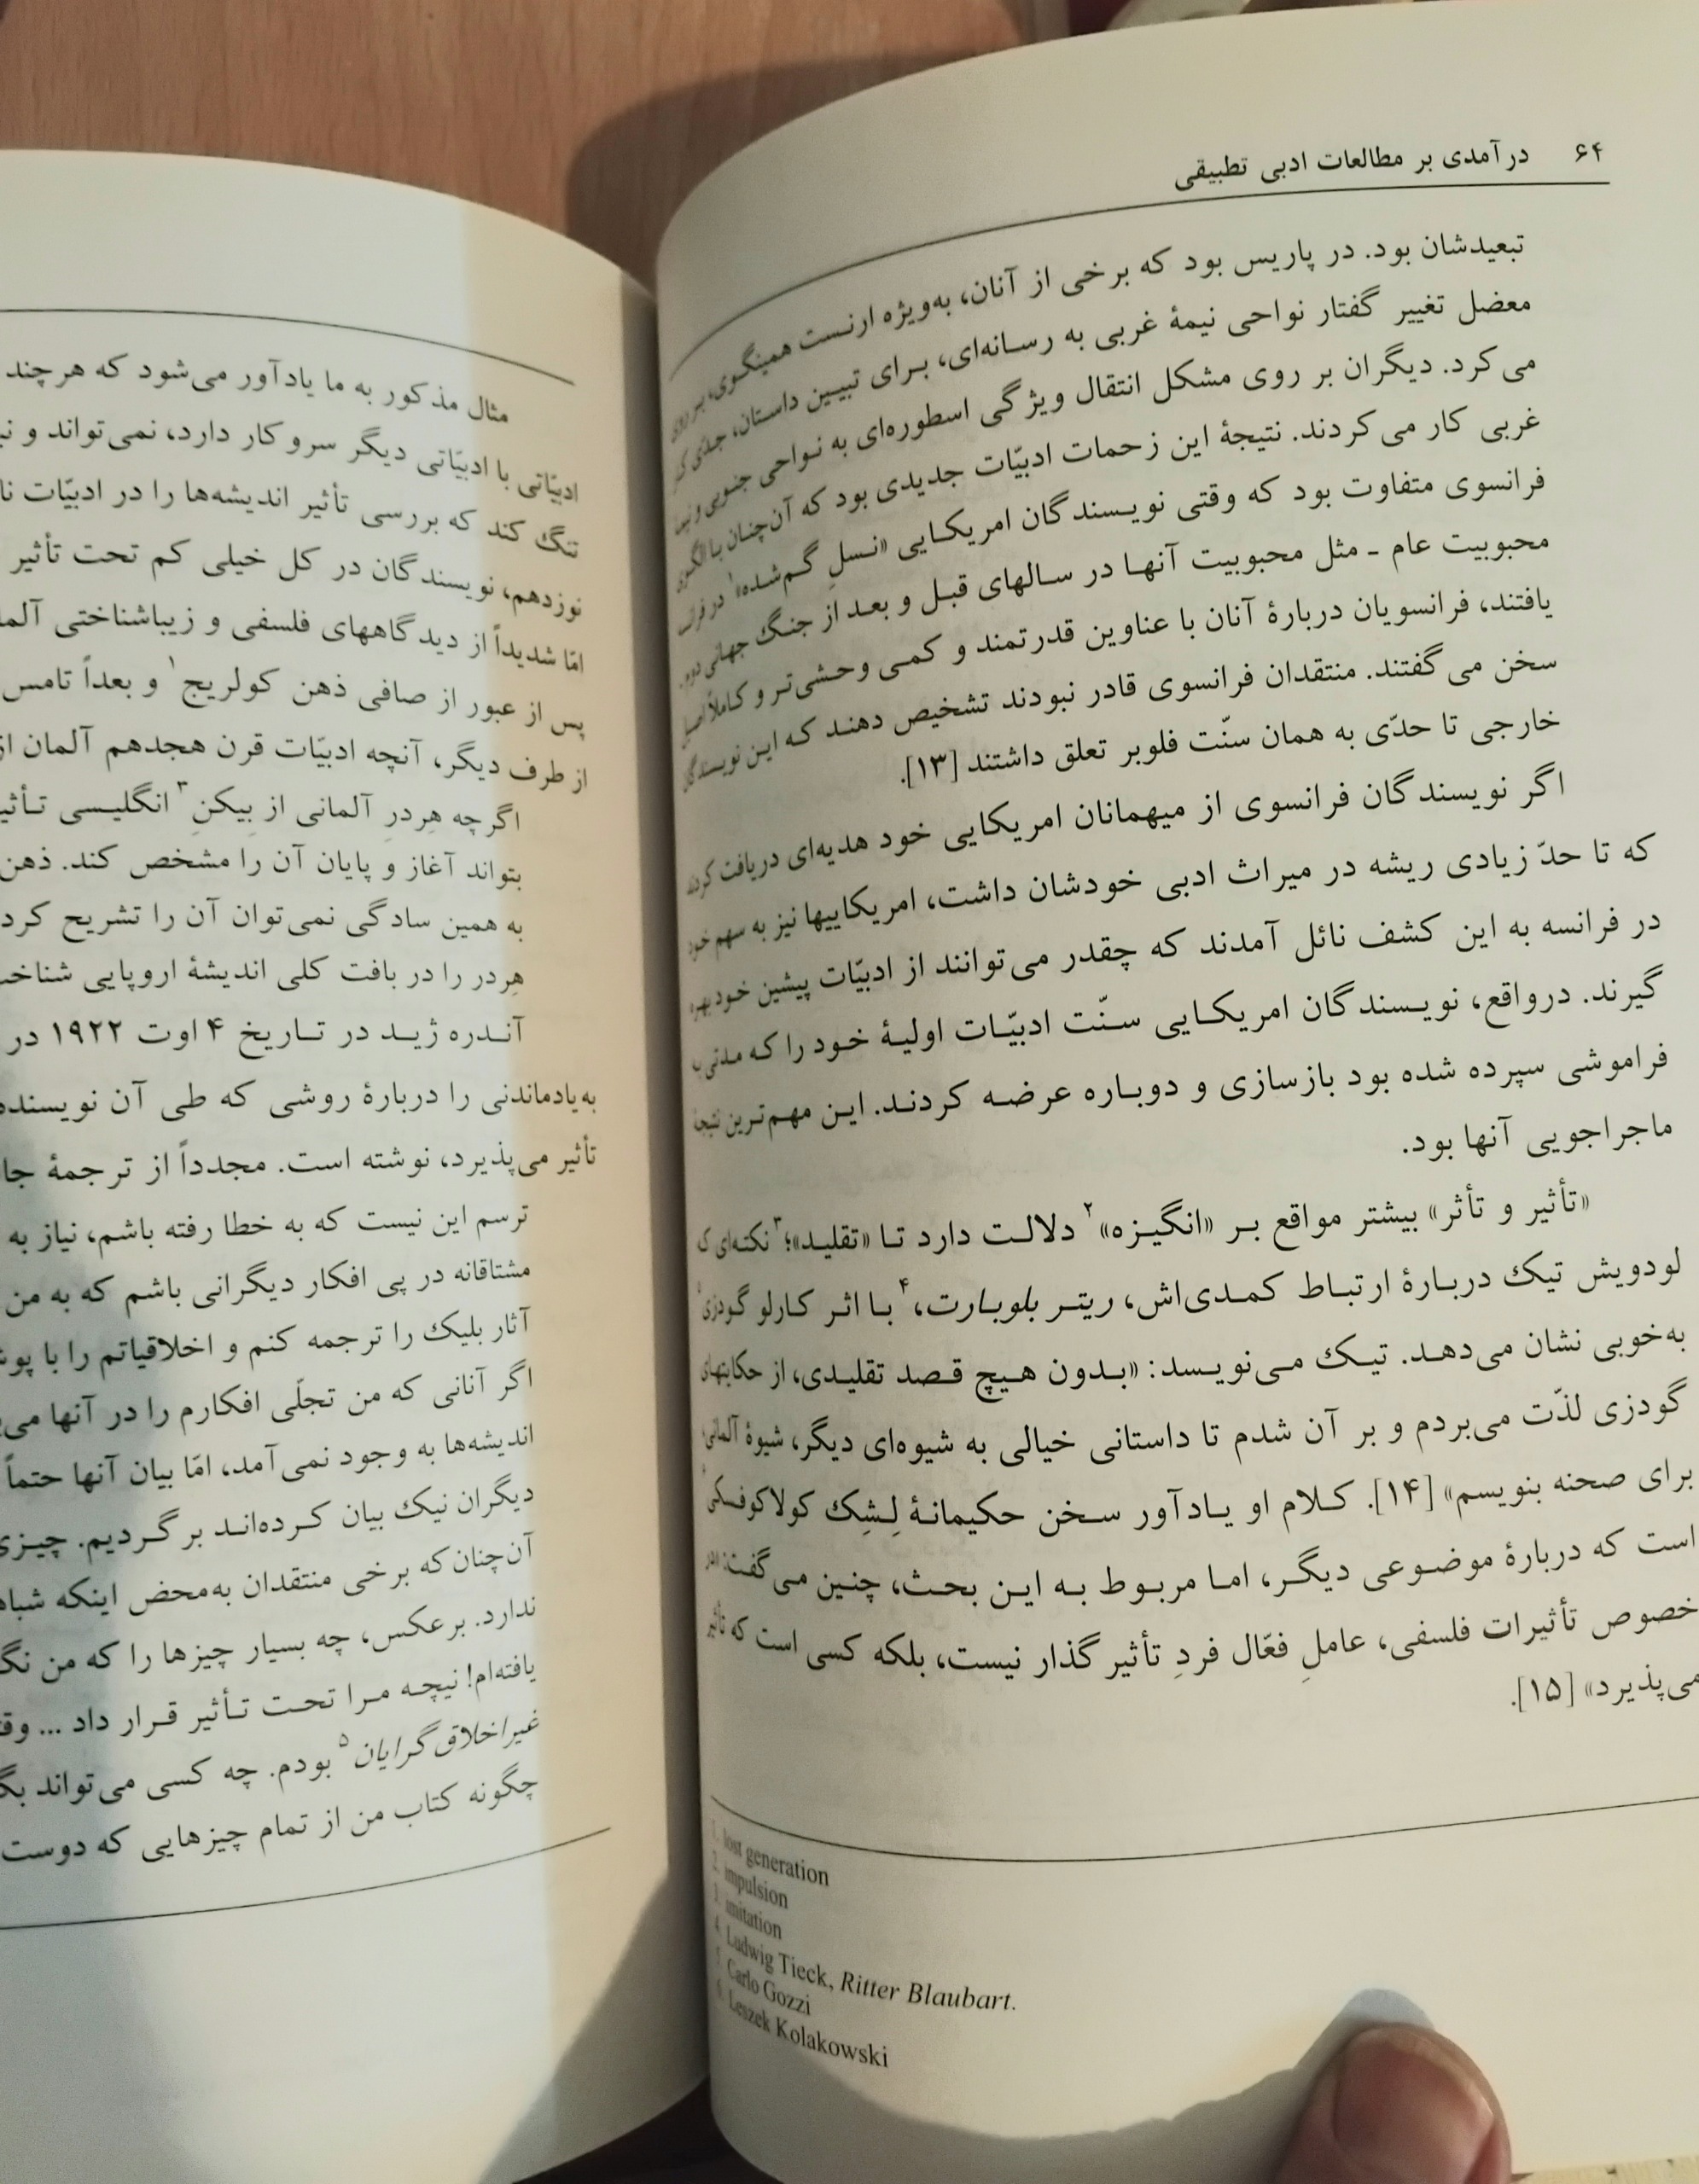 ۶۴ درآمدی بر مطالعات ادبی تطبیقی
تبعیدشان بود. در پاریس بود که برخی از آنان، به‌ویژه ارنست همینگوی، بر روی
معضل تغییر گفتار نواحی نیمهٔ غربی به رسانه‌ای، برای تبیین داستان، جدّی
می‌کرد. دیگران بر روی مشکل انتقال ویژگی اسطوره‌ای به نواحی جنوبی و
غربی کار می‌کردند. نتیجهٔ این زحمات ادبیّات جدیدی بود که آن‌چنان با الگوی
فرانسوی متفاوت بود که وقتی نویسندگان امریکایی «نسلِ گم‌شده»۱ در
محبوبیت عام ـ مثل محبوبیت آنها در سالهای قبل و بعد از جنگ جهانی دوم
یافتند، فرانسویان دربارهٔ آنان با عناوین قدرتمند و کمی وحشی‌تر و کاملاً اصیل
سخن می‌گفتند. منتقدان فرانسوی قادر نبودند تشخیص دهند که این نویسندگان
خارجی تا حدّی به همان سنّت فلوبر تعلق داشتند [۱۳].
اگر نویسندگان فرانسوی از میهمانان امریکایی خود هدیه‌ای دریافت کردند
که تا حدّ زیادی ریشه در میراث ادبی خودشان داشت، امریکاییها نیز به سهم خود
در فرانسه به این کشف نائل آمدند که چقدر می‌توانند از ادبیّات پیشین خود بهره
گیرند. درواقع، نویسندگان امریکایی سنّت ادبیّات اولیهٔ خود را که مدتی
فراموشی سپرده شده بود بازسازی و دوباره عرضه کردند. این مهم‌ترین نتیجهٔ
ماجراجویی آنها بود.
«تأثیر و تأثر» بیشتر مواقع بر «انگیزه»۲ دلالت دارد تا «تقلید»؛۳ نکته‌ای
لودویش تیک دربارهٔ ارتباط کمدی‌اش، ریتر بلوبارت،۴ با اثر کارلو گودزی۵
به‌خوبی نشان می‌دهد. تیک می‌نویسد: «بدون هیچ قصد تقلیدی، از حکایتهای
گودزی لذّت می‌بردم و بر آن شدم تا داستانی خیالی به شیوه‌ای دیگر، شیوهٔ آلمانی،
برای صحنه بنویسم» [۱۴]. کلام او یادآور سخن حکیمانهٔ لِشِک کولاکوفسکی۶
است که دربارهٔ موضوعی دیگر، اما مربوط به این بحث، چنین می‌گفت: «در
خصوص تأثیرات فلسفی، عاملِ فعّال فردِ تأثیرگذار نیست، بلکه کسی است که تأثیر
می‌پذیرد» [۱۵].
1. lost generation
2. impulsion
3. imitation
4. Ludwig Tieck, Ritter Blaubart.
5. Carlo Gozzi
6. Leszek Kolakowski
مثال مذکور به ما یادآور می‌شود که هرچند
ادبیّاتی با ادبیّاتی دیگر سروکار دارد، نمی‌تواند و
تنگ کند که بررسی تأثیر اندیشه‌ها را در ادبیّات
نوزدهم، نویسندگان در کل خیلی کم تحت تأثیر
امّا شدیداً از دیدگاههای فلسفی و زیباشناختی
پس از عبور از صافی ذهن کولریج۱ و بعداً تامس
از طرف دیگر، آنچه ادبیّات قرن هجدهم آلمان
اگرچه هِردرِ آلمانی از بِیکنِ۳ انگلیسی
بتواند آغاز و پایان آن را مشخص کند. ذهن
به همین سادگی نمی‌توان آن را تشریح کرد
هِردر را در بافت کلی اندیشهٔ اروپایی
آندره ژید در تاریخ ۴ اوت ۱۹۲۲ در
به‌یادماندنی را دربارهٔ روشی که طی آن
تأثیر می‌پذیرد، نوشته است. مجدداً از ترجمهٔ
ترسم این نیست که به خطا رفته باشم، نیاز به
مشتاقانه در پی افکار دیگرانی باشم که به من
آثار بلیک را ترجمه کنم و اخلاقیاتم را با
اگر آنانی که من تجلّی افکارم را در آنها
اندیشه‌ها به وجود نمی‌آمد، امّا بیان آنها حتماً
دیگران نیک بیان کرده‌اند برگردیم.
آن‌چنان‌که برخی منتقدان به‌محض اینکه
ندارد. برعکس، چه بسیار چیزها را که من
یافته‌ام! نیچه مرا تحت تأثیر قرار داد ...
غیراخلاق‌گرایان۵ بودم. چه کسی می‌تواند
چگونه کتاب من از تمام چیزهایی که دوست